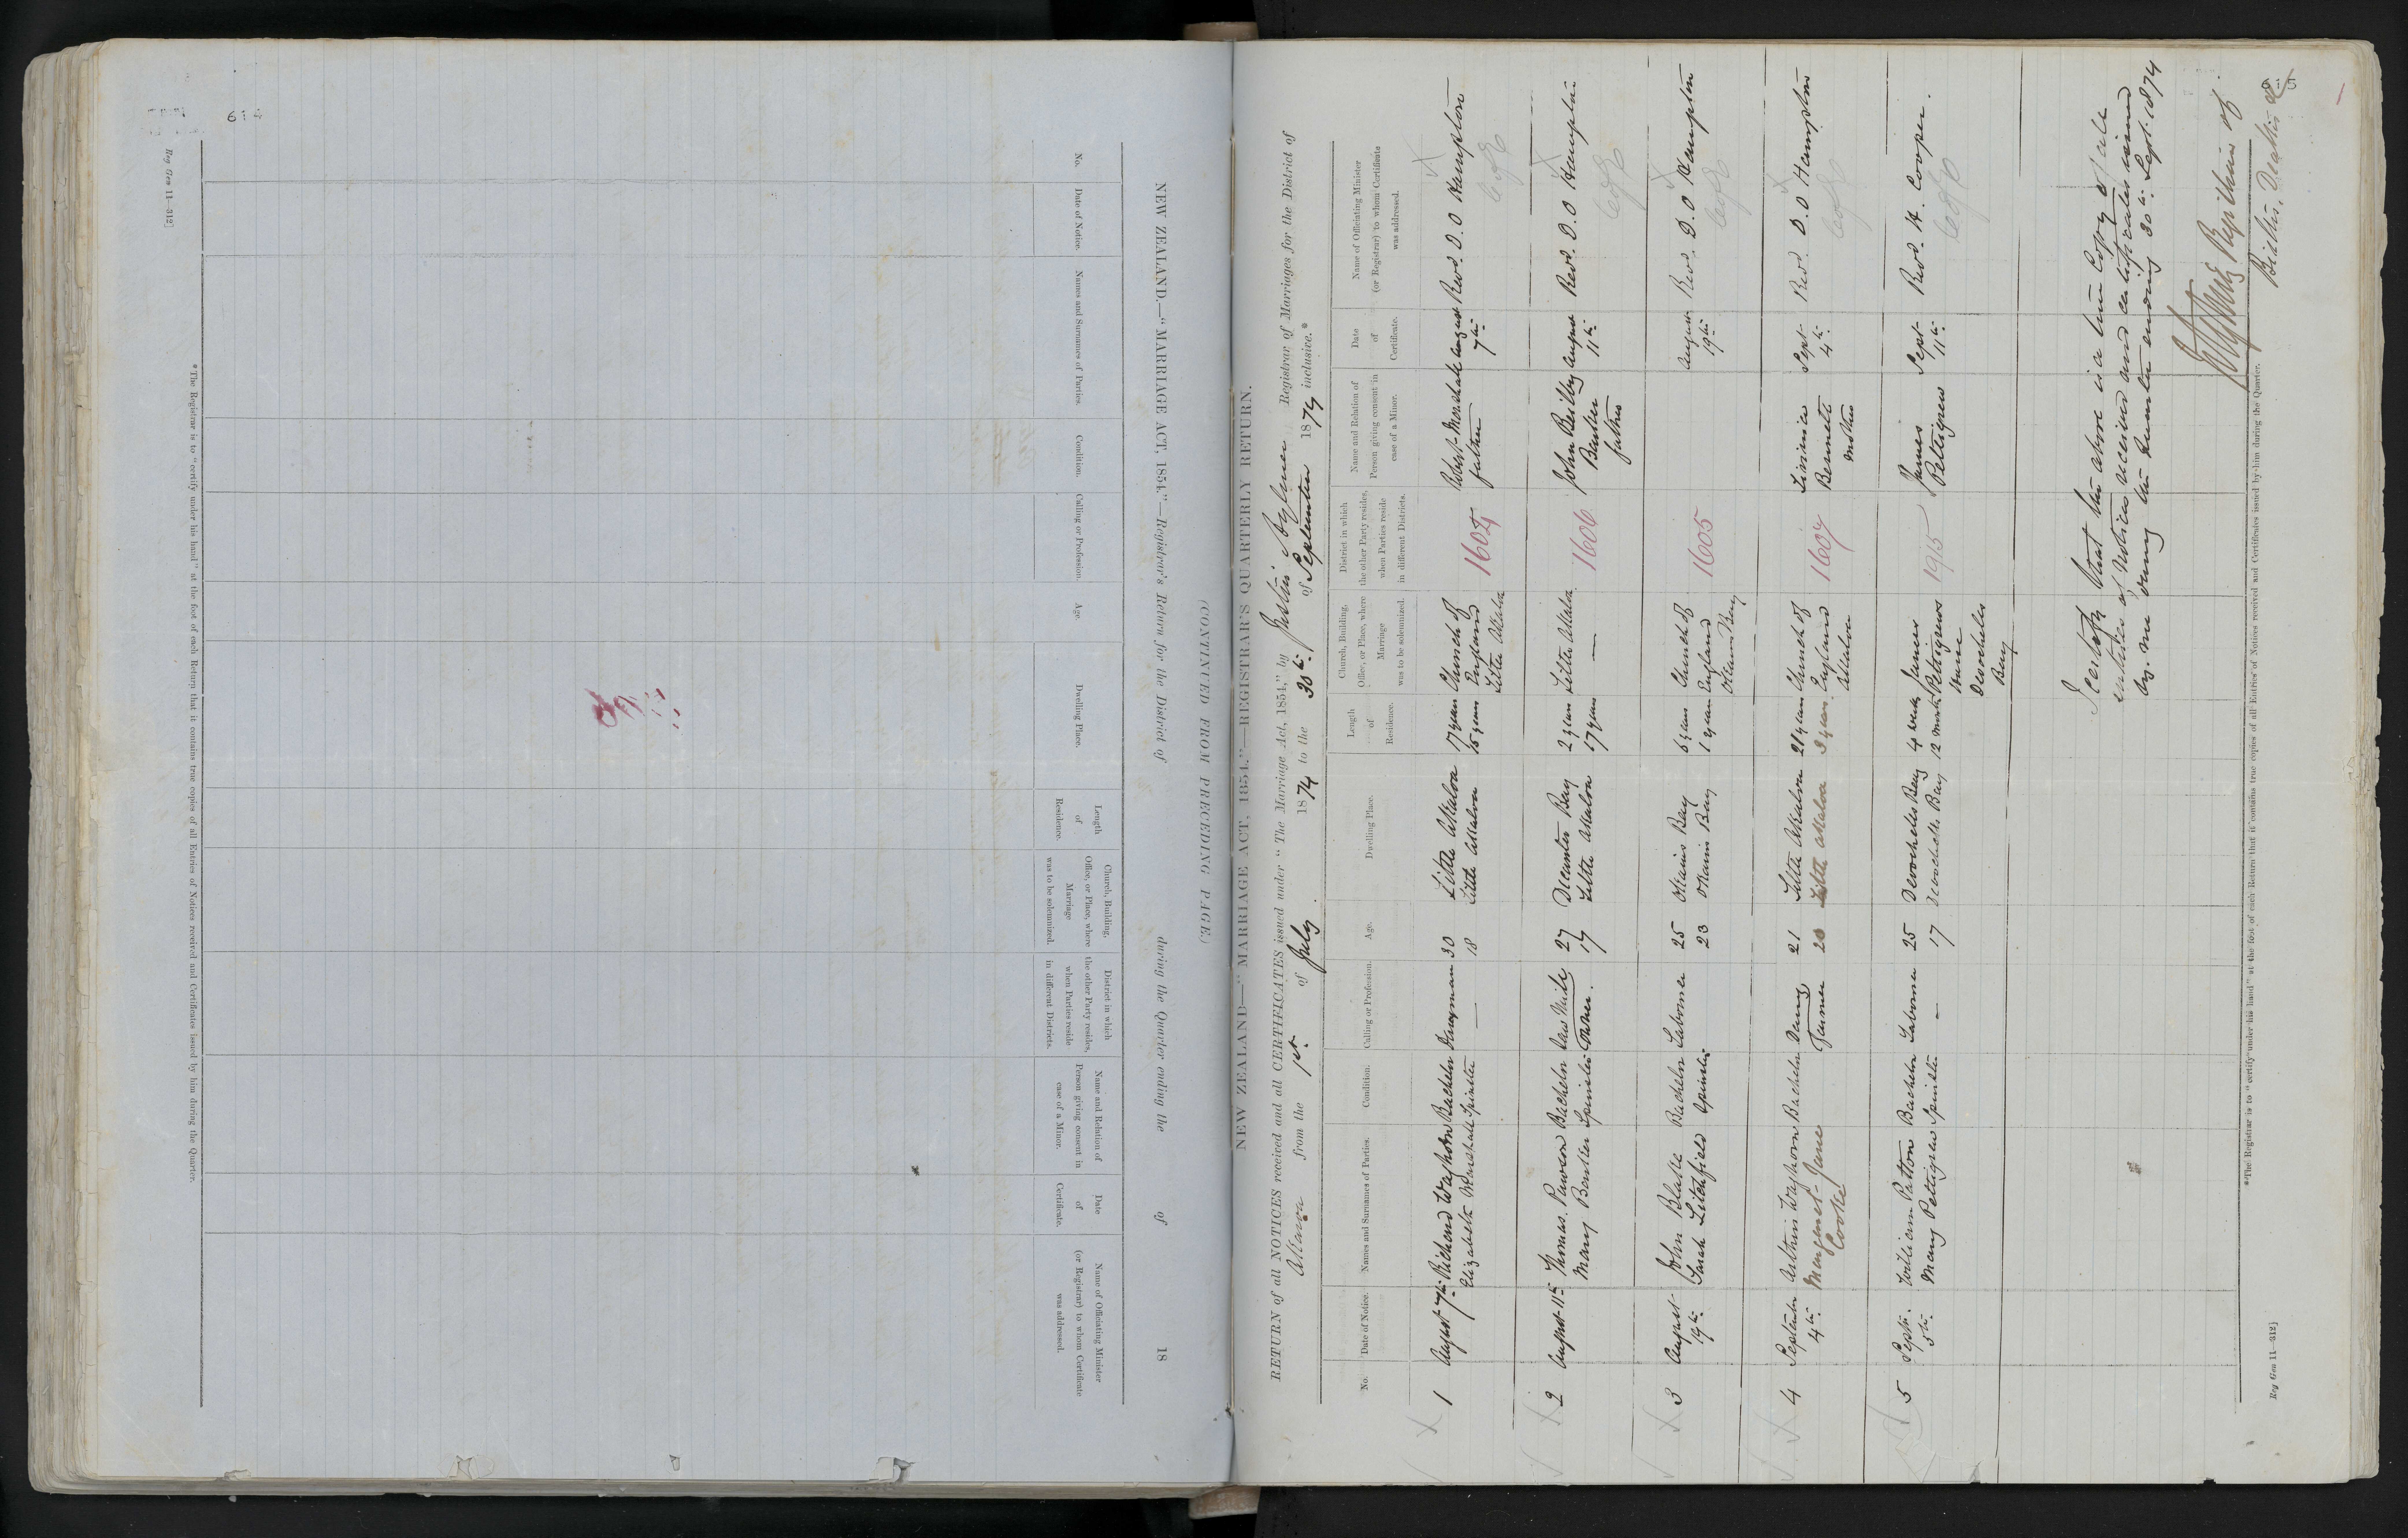 614
Reg Gen 11—312]
NEW ZEALAND.—"MARRIAGE ACT, 1854."—Registrar's Return for the District of during the Quarter ending the of 18
(CONTINUED FROM PRECEDING PAGE.)
No.
Date of Notice.
Names and Surnames of Parties.
Condition.
Calling or Profession.
Age.
Dwelling Place.
Length
of
Residence.
Church, Building,
Office, or Place, where
Marriage
was to be solemnized.
District in which
the other Party resides,
when Parties reside
in different Districts.
Name and Relation of
Person giving consent in
case of a Minor.
Date
of
Certificate.
Name of Officiating Minister
(or Registrar) to whom Certificate
was addressed.
*The Registrar is to "certify under his hand" at the foot of each Return that it contains true copies of all Entries of Notices received and Certificates issued by him during the Quarter.
NEW ZEALAND—"MARRIAGE ACT, 1854."—REGISTRAR'S QUARTERLY RETURN.
RETURN of all NOTICES received and all CERTIFICATES issued under "The Marriage Act, 1854," by Justin Aylmer Registrar of Marriages for the District of
Akaroa from the 1st of July 1874 to the 30th of September 1874 inclusive.*
No.
Date of Notice.
Names and Surnames of Parties.
Condition.
Calling or Profession.
Age.
Dwelling Place.
Length
of
Residence.
Church, Building,
Office, or Place, where
Marriage
was to be solemnized.
District in which
the other Party resides,
when Parties reside
in different Districts.
Name and Relation of
Person giving consent in
case of a Minor.
Date
of
Certificate.
Name of Officiating Minister
(or Registrar) to whom Certificate
was addressed.
1 August 7th Richard Waghorn Bachelor Drayman 30 Little Akaloa 17 years Church of 1604 Robert Menshall August Revd. D. O Hampton
Elizabeth Menshall Spinster — 18 Little Akaloa 15 years England father 7th
Little Akaloa
2 August 11th Thomas Pawson Bachelor Saw Mill 27 Decanter Bay 2 years Little Akaloa 1606 John Bailey August Revd. D. O Hampton
Mary Bunker Spinster owner. 17 Little Akaloa 17 years — Bunker 11th
father
3 August John Blake Bachelor Laborer 25 Okains Bay 6 years Church of 1605 August Revd. D. O Hampton
19th Sarah Litchfield Spinster 23 Okains Bay 1 year England 19th
Okains Bay
4 September Arthur Waghorn Bachelor Dairy 21 Little Akaloa 21 years Church of 1607 Livinia Sept Revd. D. O Hampton
4th Margaret Jane Farmer 20 Little Akaloa 3 years England Bennett 4th
Cooke Akaloa mother
5 Septr. William Patton Bachelor Laborer 25 Duvauchelles Bay 4 weeks James 1915 James Sept Revd. H. Cooper.
5th Mary Pettigrew Spinster — 17 Bay 12 months Pettigrews Pettigrew 11th
House
Bay
I certify that the above is a true Copy of all
entries of Notices received and certificates issued
by me during the Quarter ending 30th Sept. 1874
Registrar of
Births, Deaths &
*The Registrar is to "certify under his hand" at the foot of each Return that it contains true copies of all Entries of Notices received and Certificates issued by him during the Quarter.
Reg Gen 11—312]